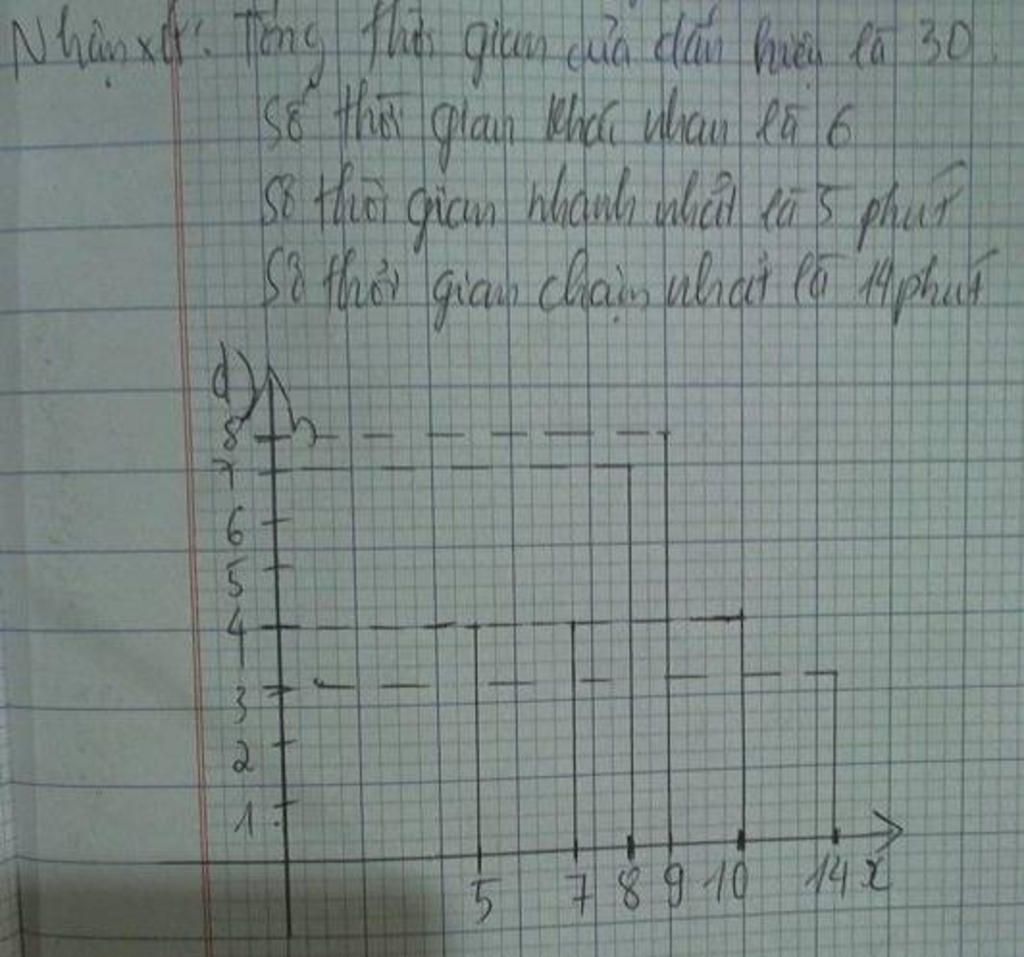 Nhận xét: Tổng thời gian của dấu hiệu là 30.
Số thời gian khác nhau là 6
Số thời gian nhanh nhất là 5 phút
Số thời gian chậm nhất là 14 phút
d)
n
8
7
6
5
4
3
2
1
5 7 8 9 10 14 x